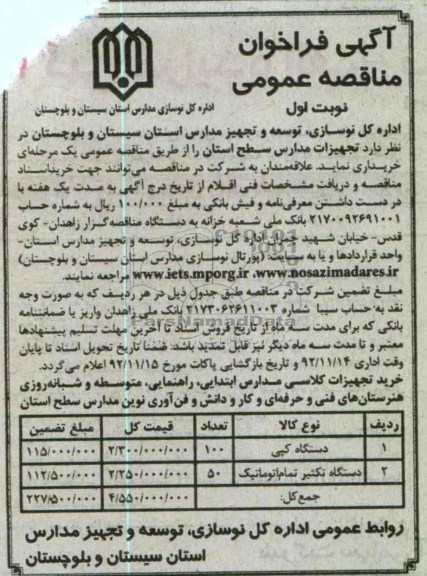 آگهی فراخوان
مناقصه عمومی
نوبت اول
اداره کل نوسازی مدارس استان سیستان و بلوچستان
اداره کل نوسازی، توسعه و تجهیز مدارس استان سیستان و بلوچستان در
نظر دارد تجهیزات مدارس سطح استان را از طریق مناقصه عمومی یک مرحله‌ای
خریداری نماید. علاقه‌مندان به شرکت در مناقصه می‌توانند جهت خرید اسناد
مناقصه و دریافت مشخصات فنی اقلام از تاریخ درج آگهی به مدت یک هفته با
در دست داشتن معرفی‌نامه و فیش بانکی به مبلغ ۱۰۰/۰۰۰ ریال به شماره حساب
۲۱۷۰۰۹۲۶۹۱۰۰۱ بانک ملی شعبه خزانه به دستگاه مناقصه‌گزار زاهدان- کوی
قدس- خیابان شهید چمران اداره کل نوسازی، توسعه و تجهیز مدارس استان-
واحد قراردادها و یا به سایت: (پورتال نوسازی مدارس استان سیستان و بلوچستان)
www.iets.mporg.ir ،www.nosazimadares.ir مراجعه نمایند.
مبلغ تضمین شرکت در مناقصه طبق جدول ذیل در هر ردیف که به صورت وجه
نقد به حساب سیبا شماره ۲۱۷۳۰۶۲۶۱۱۰۰۳ بانک ملی زاهدان واریز یا ضمانتنامه
بانکی که برای مدت سه ماه از تاریخ فروش اسناد تا آخرین مهلت تسلیم پیشنهادها
معتبر و تا مدت سه ماه دیگر نیز قابل تمدید باشد. ضمناً تاریخ تحویل اسناد تا پایان
وقت اداری ۹۲/۱۱/۱۴ و تاریخ بازگشایی پاکات مورخ ۹۲/۱۱/۱۵ اعلام می‌گردد.
خرید تجهیزات کلاسی مدارس ابتدایی، راهنمایی، متوسطه و شبانه‌روزی
هنرستان‌های فنی و حرفه‌ای و کار و دانش و فن‌آوری نوین مدارس سطح استان
ردیف نوع کالا تعداد قیمت کل مبلغ تضمین
۱ دستگاه کپی ۱۰۰ ۲/۳۰۰/۰۰۰/۰۰۰ ۱۱۵/۰۰۰/۰۰۰
۲ دستگاه تکثیر تمام‌اتوماتیک ۵۰ ۲/۲۵۰/۰۰۰/۰۰۰ ۱۱۲/۵۰۰/۰۰۰
جمع کل: ۴/۵۵۰/۰۰۰/۰۰۰ ۲۲۷/۵۰۰/۰۰۰
روابط عمومی اداره کل نوسازی، توسعه و تجهیز مدارس
استان سیستان و بلوچستان